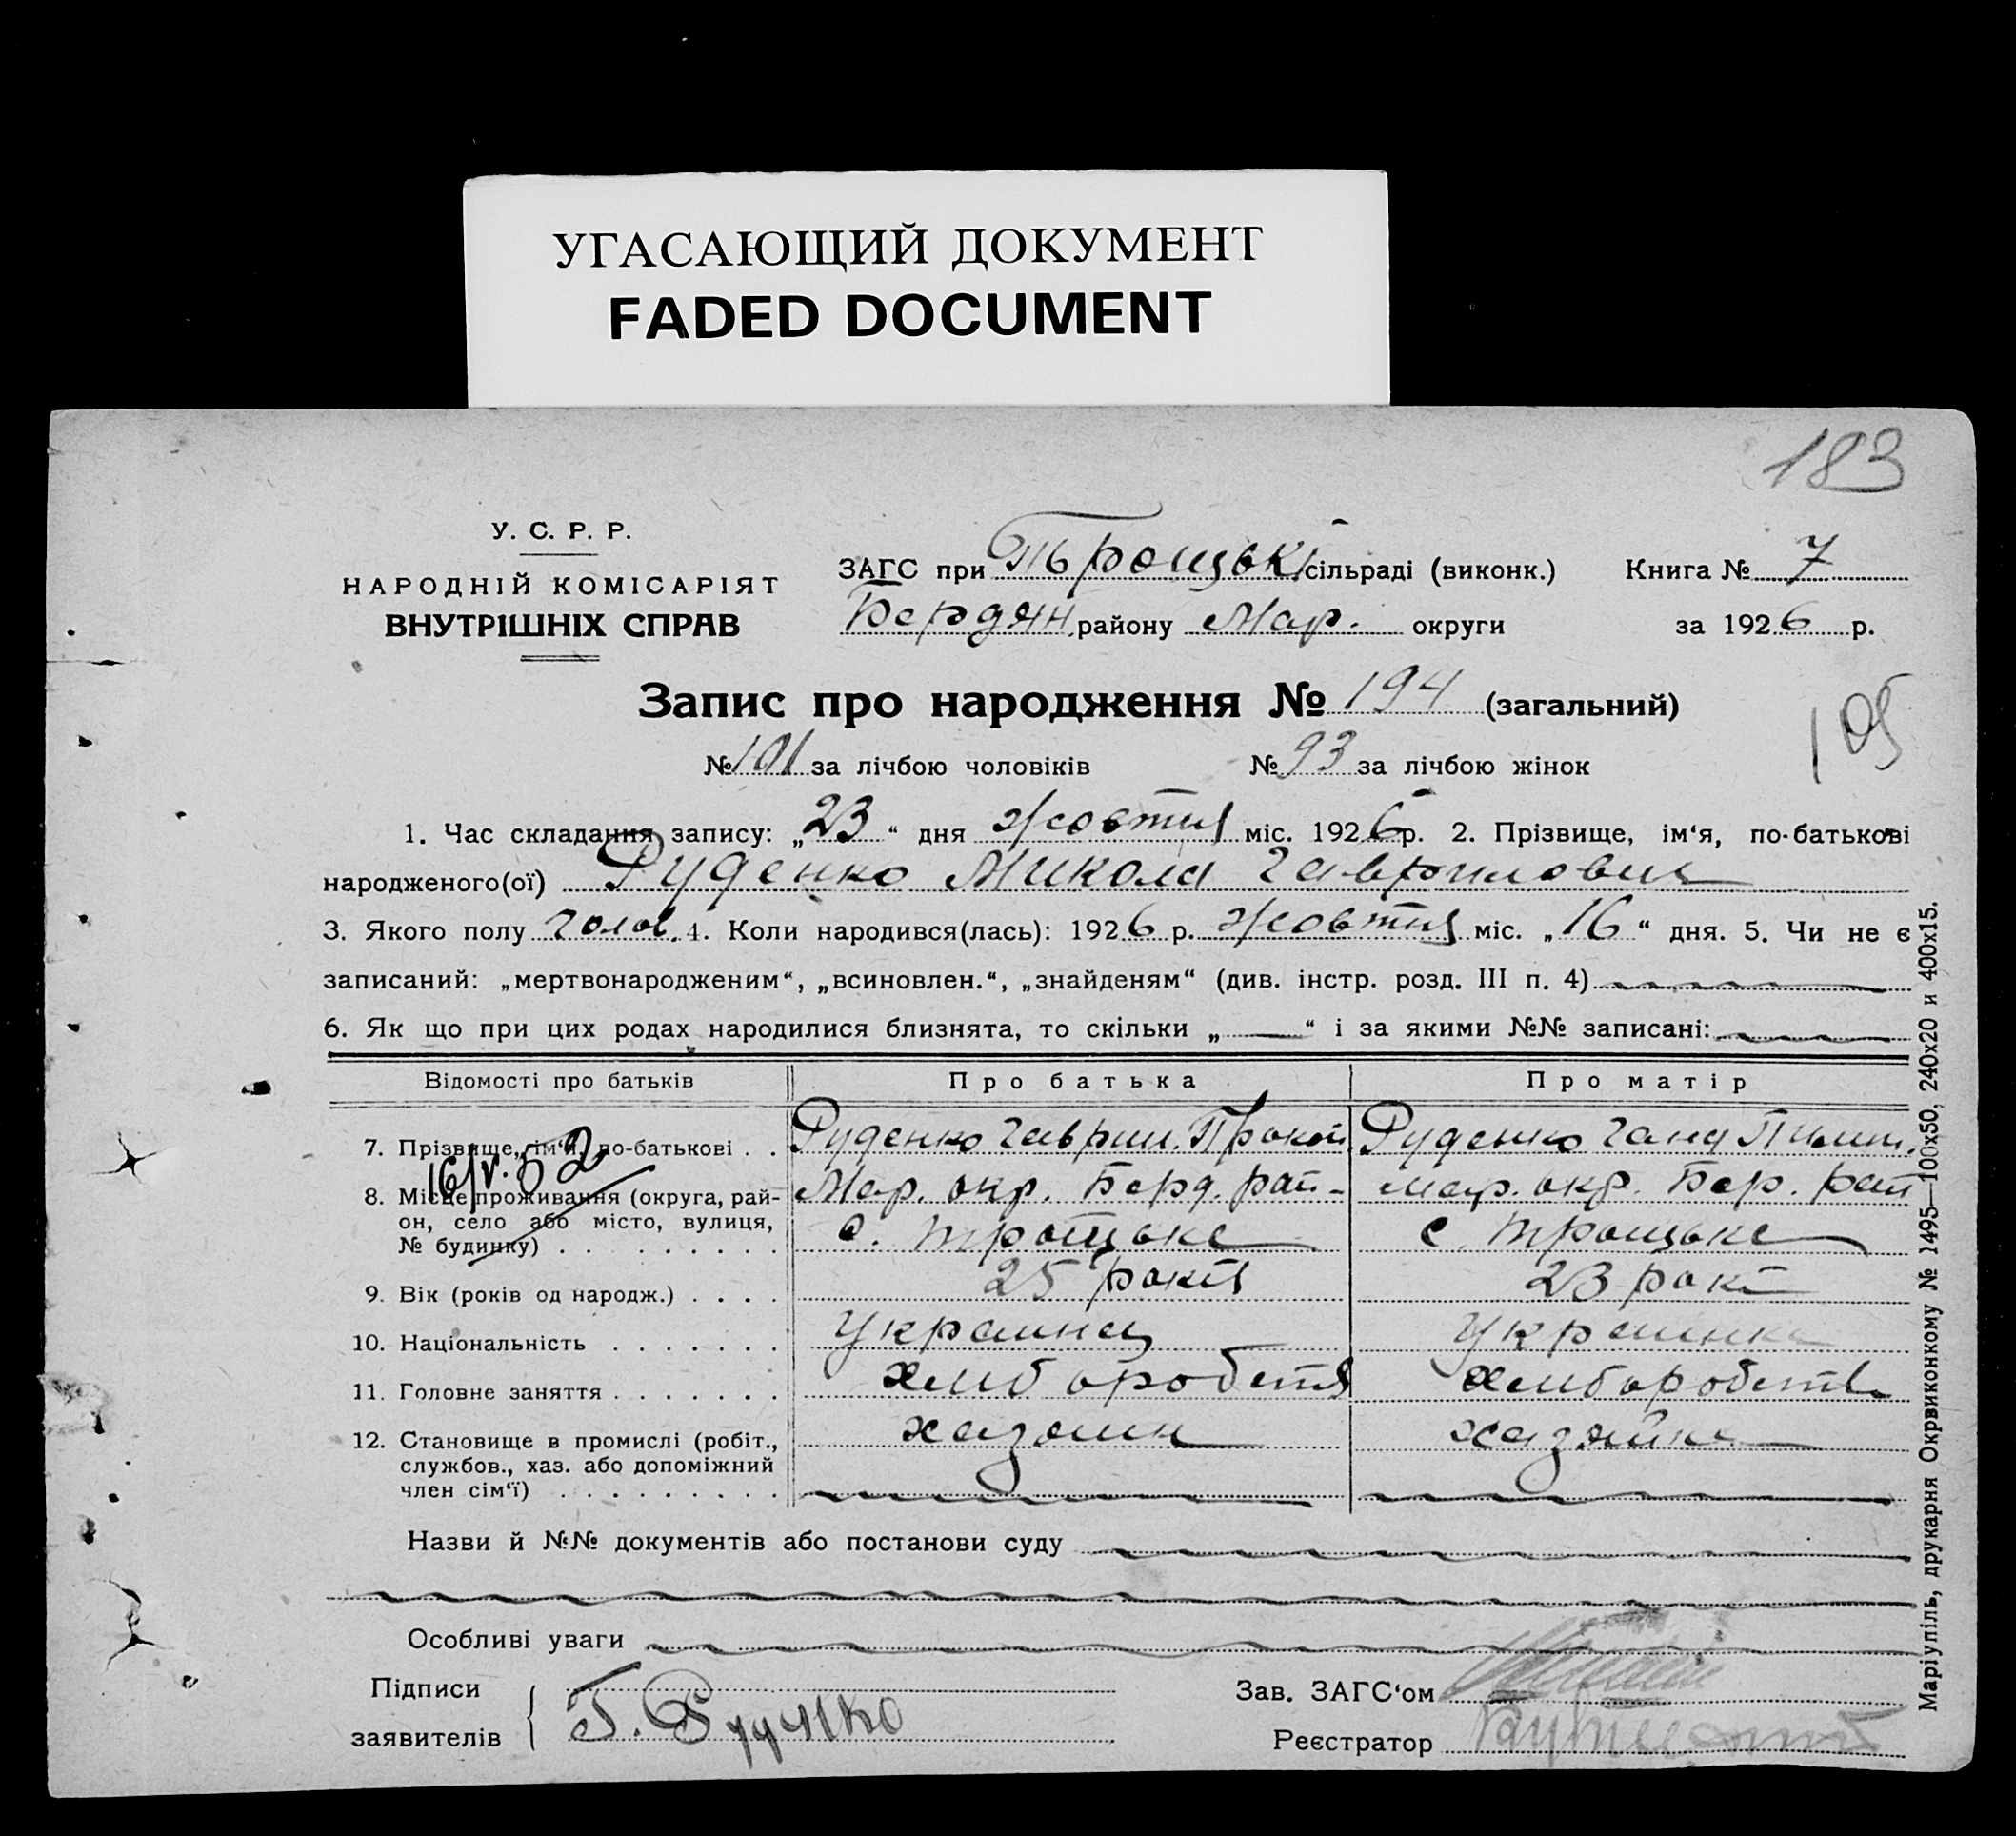 УГАСАЮЩИЙ ДОКУМЕНТ
FADED DOCUMENT
183
У. С. Р. Р.
НАРОДНІЙ КОМІСАРІЯТ
ВНУТРІШНІХ СПРАВ
ЗАГС при Троцькі сільраді (виконк.) Книга № 7
Бердян. району Мар. округи за 1926 р.
Запис про народження № 194 (загальний)
105
№ 101 за лічбою чоловіків № 93 за лічбою жінок
1. Час складання запису: „23“ дня жовтня міс. 1926 р. 2. Прізвище, ім‘я, по-батькові
народженого(ої) Руденко Микола Гаврилович
3. Якого полу чолов. 4. Коли народився(лась): 1926 р. жовтня міс. „16“ дня. 5. Чи не є
записаний: „мертвонародженим“, „всиновлен.“, „знайденям“ (див. інстр. розд. III п. 4)
6. Як що при цих родах народилися близнята, то скільки „—“ і за якими №№ записані:
Відомості про батьків Про батька Про матір
7. Прізвище, ім‘я, по-батькові . . Руденко Гаврил. Прокоп. Руденко Гана Пилип.
16/V. 52
8. Місце проживання (округа, рай- Мар. окр. Берд. рай- Мар. окр. Бер. рай
он, село або місто, вулиця, с. Троцьке с. Троцьке
№ будинку) . . . . . . . . .
9. Вік (років од народж.) . . . . 25 років 23 рокі
10. Національність . . . . . . . Украинец Украинка
11. Головне заняття . . . . . . . хлиборобств хлиборобств
12. Становище в промислі (робіт., хазаин хазяйка
службов., хаз. або допоміжний
член сім‘ї) . . . . . . . . .
Назви й №№ документів або постанови суду
Особливі уваги
Підписи
заявителів Г. Руденко
Зав. ЗАГС‘ом
Реєстратор
Маріупіль, друкарня Окрвиконкому № 1495—100x50, 240x20 и 400x15.